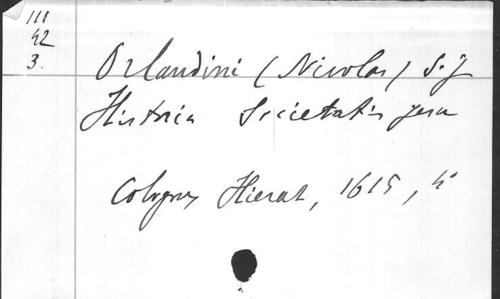 111
42
3.
Orlandini (Nicolas) S.J
Historia Societatis Jesu
Cologne, Hierat, 1615, 4°